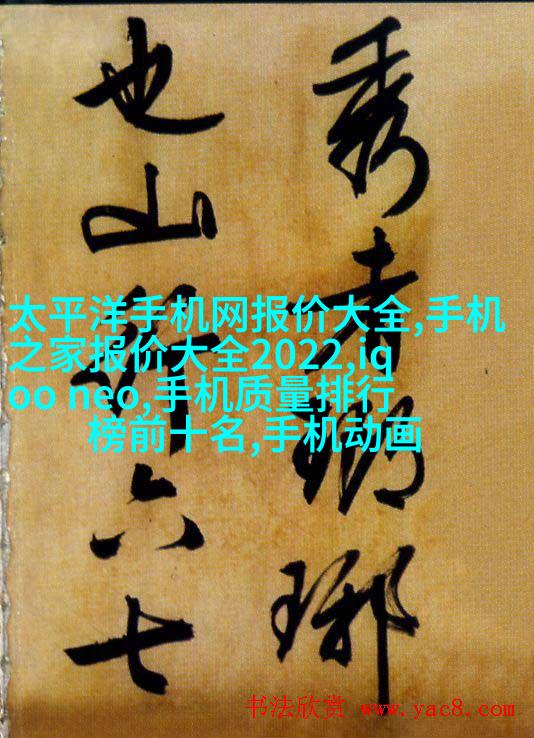 秀者瑯琊
也山行六七
太平洋手机网报价大全,手机
之家报价大全2022,iq
oo neo,手机质量排行
榜前十名,手机动画
书法欣赏 www.yac8.com